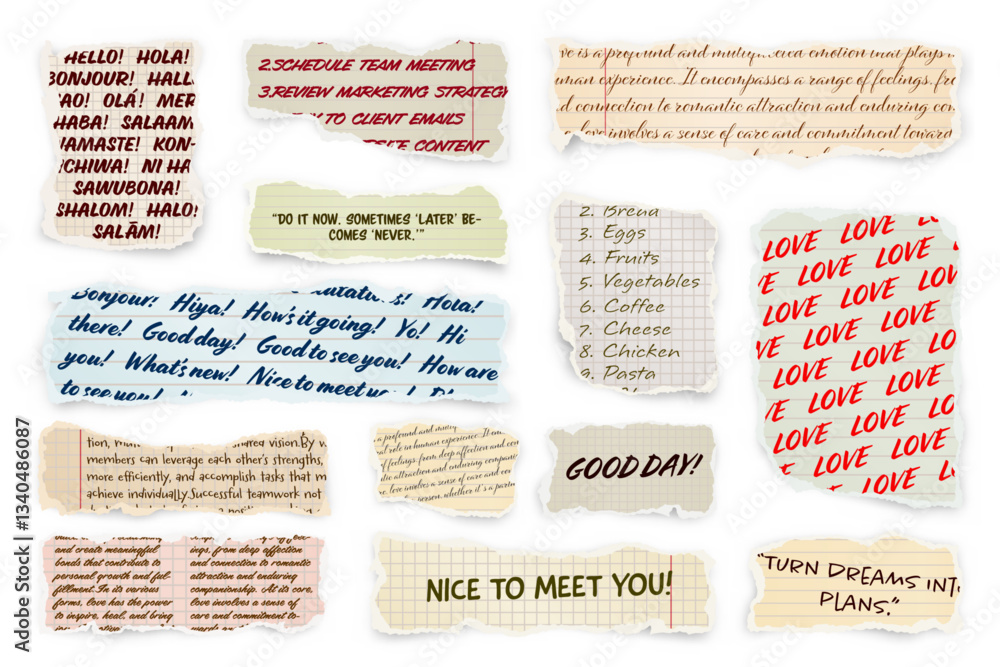 HELLO! HOLA!
BONJOUR! HALL
AO! OLÁ! MER
HABA! SALAAM
NAMASTE! KON-
CHIWA! NI HA
SAWUBONA!
SHALOM! HALO!
SALĀM!
2.SCHEDULE TEAM MEETING
3.REVIEW MARKETING STRATEGY
TO CLIENT EMAILS
CONTENT
ve is a profound and emotion that plays
uman experience. It encompasses a range of feelings, fro
d connection to romantic attraction and enduring con
love involves a sense of care and commitment toward
"DO IT NOW. SOMETIMES 'LATER' BE-
COMES 'NEVER.'"
2. Bread
3. Eggs
4. Fruits
5. Vegetables
6. Coffee
7. Cheese
8. Chicken
9. Pasta
LOVE LOVE
LOVE LOVE LOVE
VE LOVE LOVE
LOVE LOVE LO
LOVE LOVE LOVE
VE LOVE LOVE
LOVE LOVE LO
LOVE LOVE LOVE
VE LOVE LOVE
LOVE LOVE LO
LOVE LOVE LOVE
LOVE LOVE
Bonjour! Hiya! Hola!
there! Good day! How's it going! Yo! Hi
you! What's new! Good to see you! How are
to see you! Nice to meet you!
tion, shared vision.By w
members can leverage each other's strengths,
more efficiently, and accomplish tasks that m
achieve individually.Successful teamwork not
a profound and
al role in human experience. It enc
f feelings, from deep affection and con
ttraction and enduring companic
e, love involves a sense of care and co
person, whether it's a partn
GOOD DAY!
and create meaningful
bonds that contribute to
personal growth and ful-
fillment.In its various
forms, love has the power
to inspire, heal, and bring
ings, from deep affection
and connection to romantic
attraction and enduring
companionship. At its core,
love involves a sense of
care and commitment to-
NICE TO MEET YOU!
"TURN DREAMS INTO
PLANS."
Adobe Stock | #1340486087